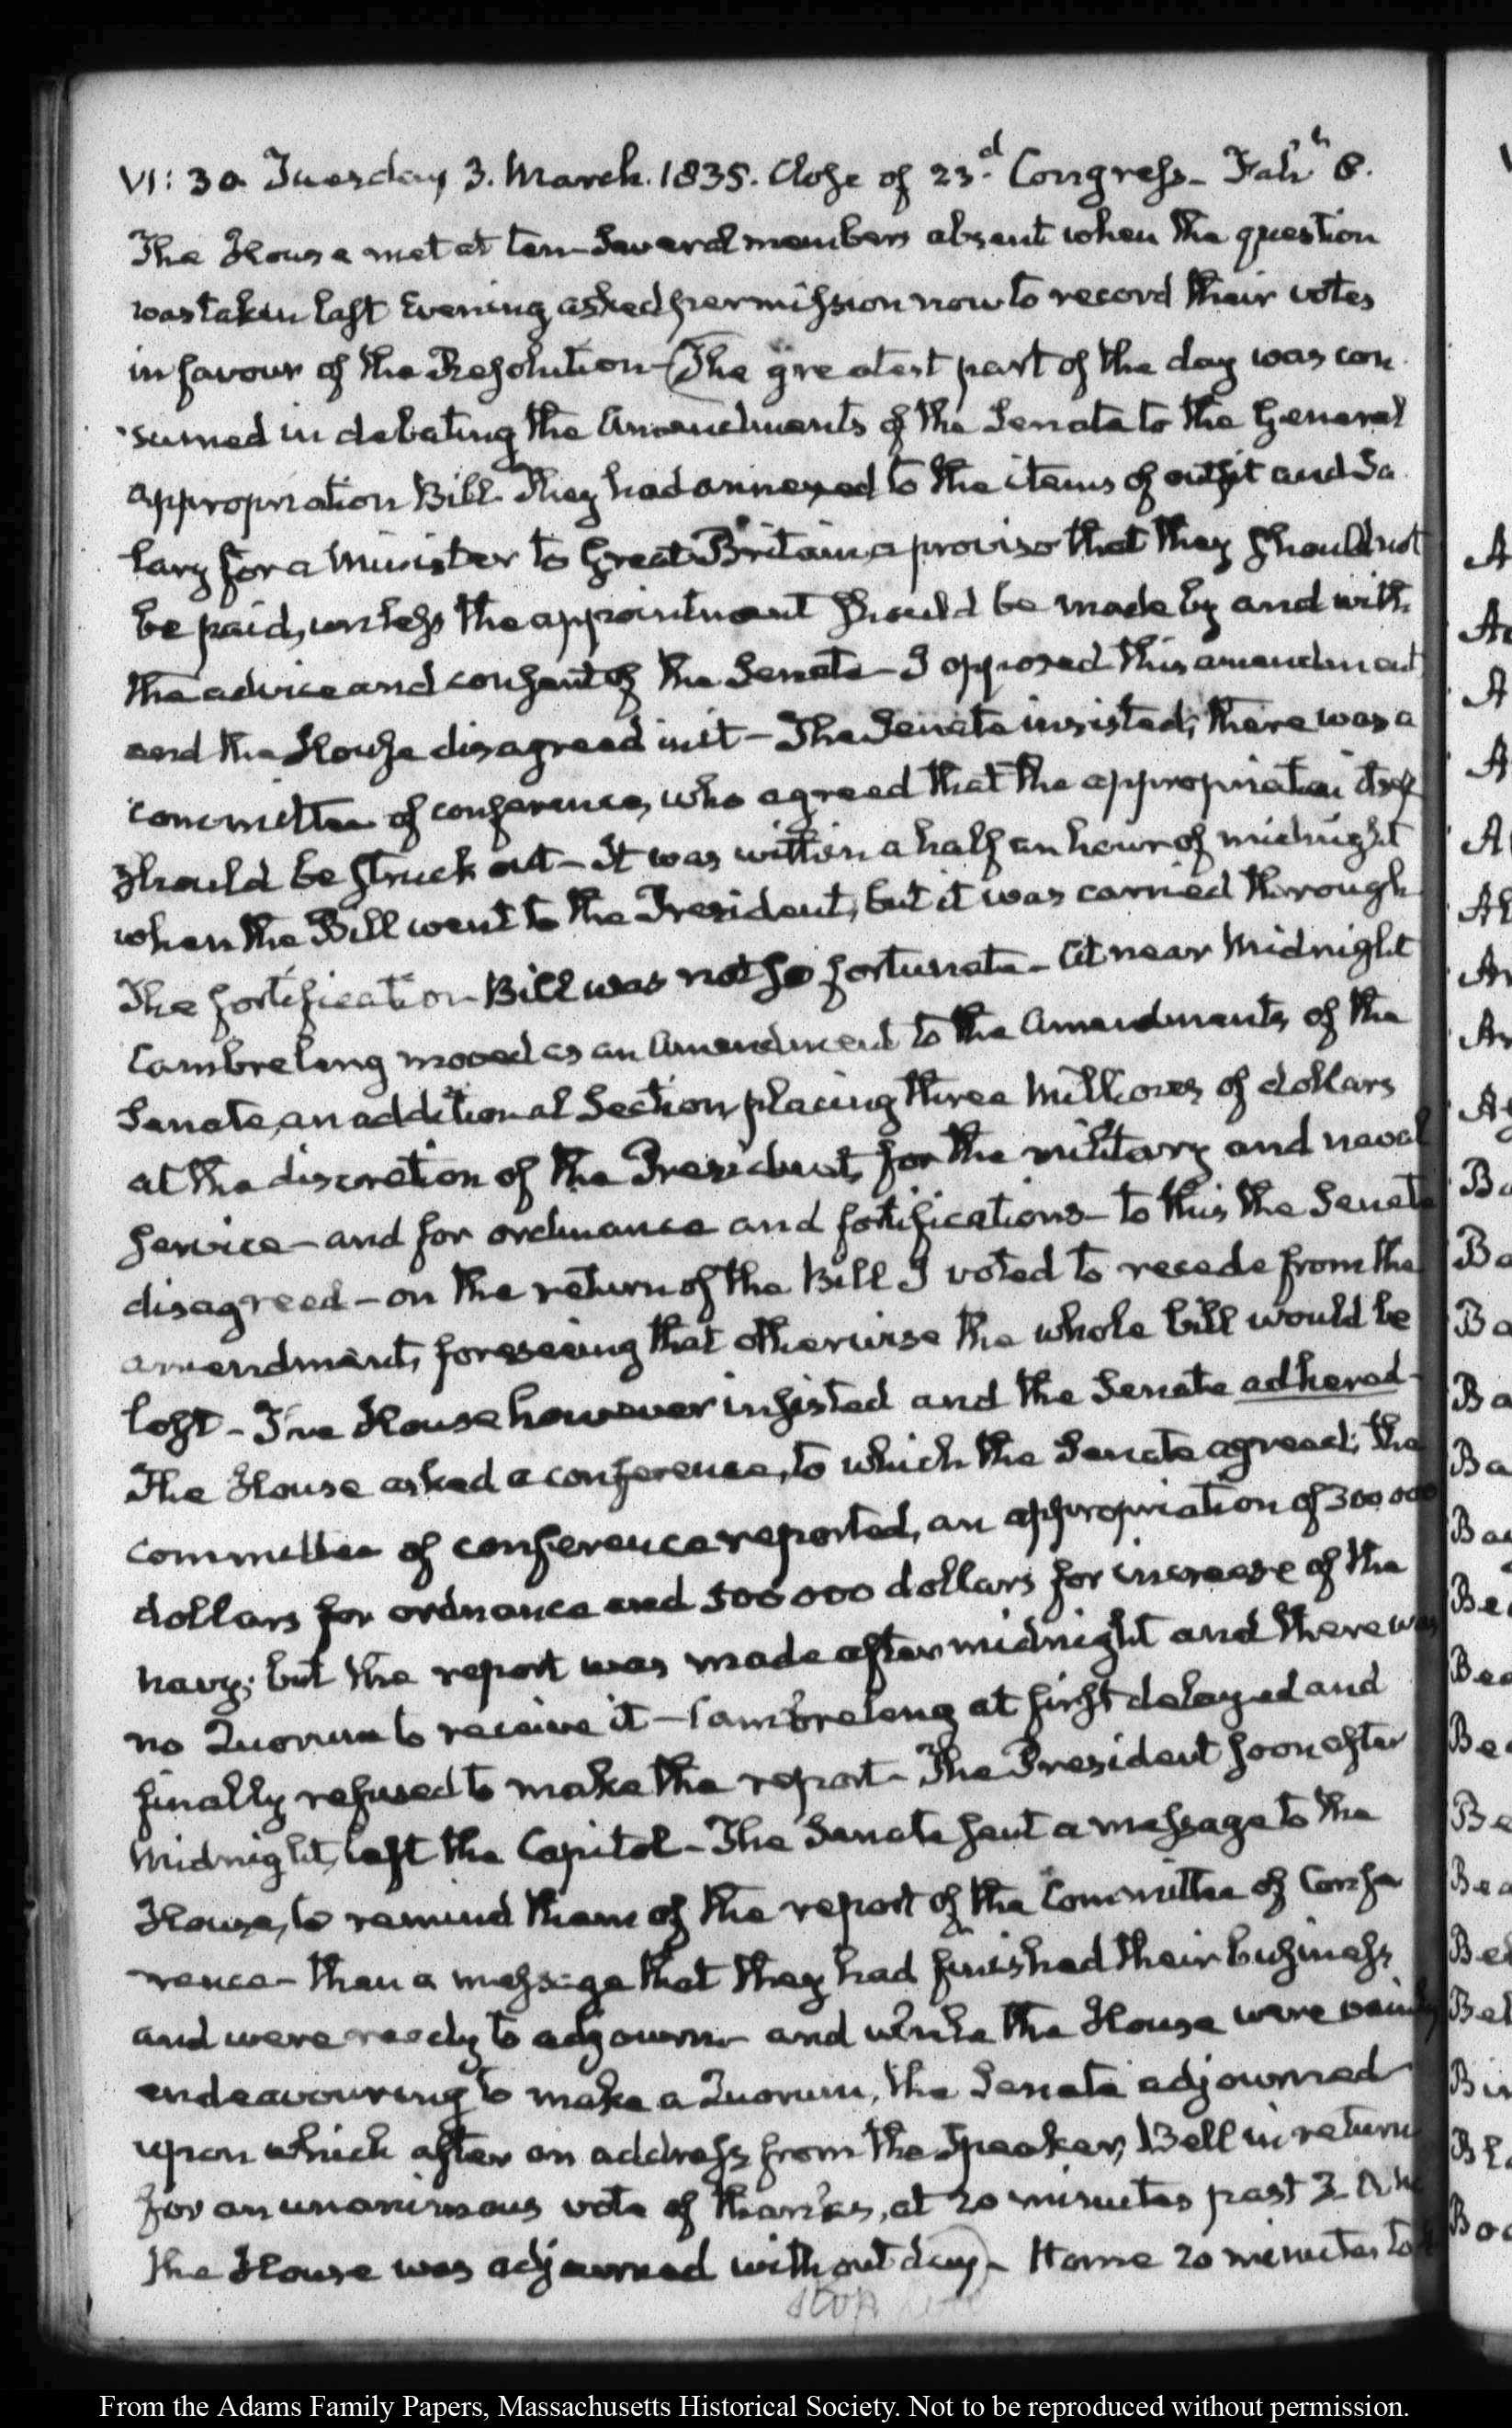 VI: 30. Tuesday 3. March. 1835. Close of 23.d Congress - Fahrt 8.
The House met at ten - Several members absent when the question
was taken last Evening, asked permission now to record their votes
in favour of the Resolution - (The greatest part of the day was con
sumed in debating the Amendments of the Senate to the General
appropriation Bill. They had annexed to the items of outfit and Sa
lary for a Minister to Great Britain, a proviso that they should not
be paid, unless the appointment should be made by and with
the advice and consent of the Senate - I opposed this amendment
and the House disagreed in it - The Senate insisted; there was a
committee of conference, who agreed that the appropriation itself
should be struck out - It was within a half an hour of midnight
when the Bill went to the President, but it was carried through
The fortification Bill was not so fortunate - At near Midnight
Cambreleng moved as an Amendment to the Amendments of the
Senate, an additional Section, placing three Millions of dollars
at the discretion of the President, for the military and naval
service - and for ordnance and fortifications - to this the Senate
disagreed - on the return of the Bill I voted to recede from the
amendment, foreseeing that otherwise the whole bill would be
lost - The House however insisted and the Senate adhered -
The House asked a conference, to which the Senate agreed; the
committee of conference reported, an appropriation of 300000
dollars for ordnance and 500000 dollars for increase of the
navy; but the report was made after midnight and there was
no Quorum to receive it - Cambreleng at first delayed and
finally refused to make the report - The President soon after
Midnight, left the Capitol - The Senate sent a message to the
House, to remind them of the report of the Committee of Confe
rence - then a message that they had finished their business
and were ready to adjourn - and while the House were vainly
endeavouring to make a Quorum, the Senate adjourned
upon which after an address from the Speaker, Bell in return
for an unanimous vote of thanks, at 20 minutes past 3. A.M.
the House was adjourned without day) - Home 20 minutes to
stop here
From the Adams Family Papers, Massachusetts Historical Society. Not to be reproduced without permission.